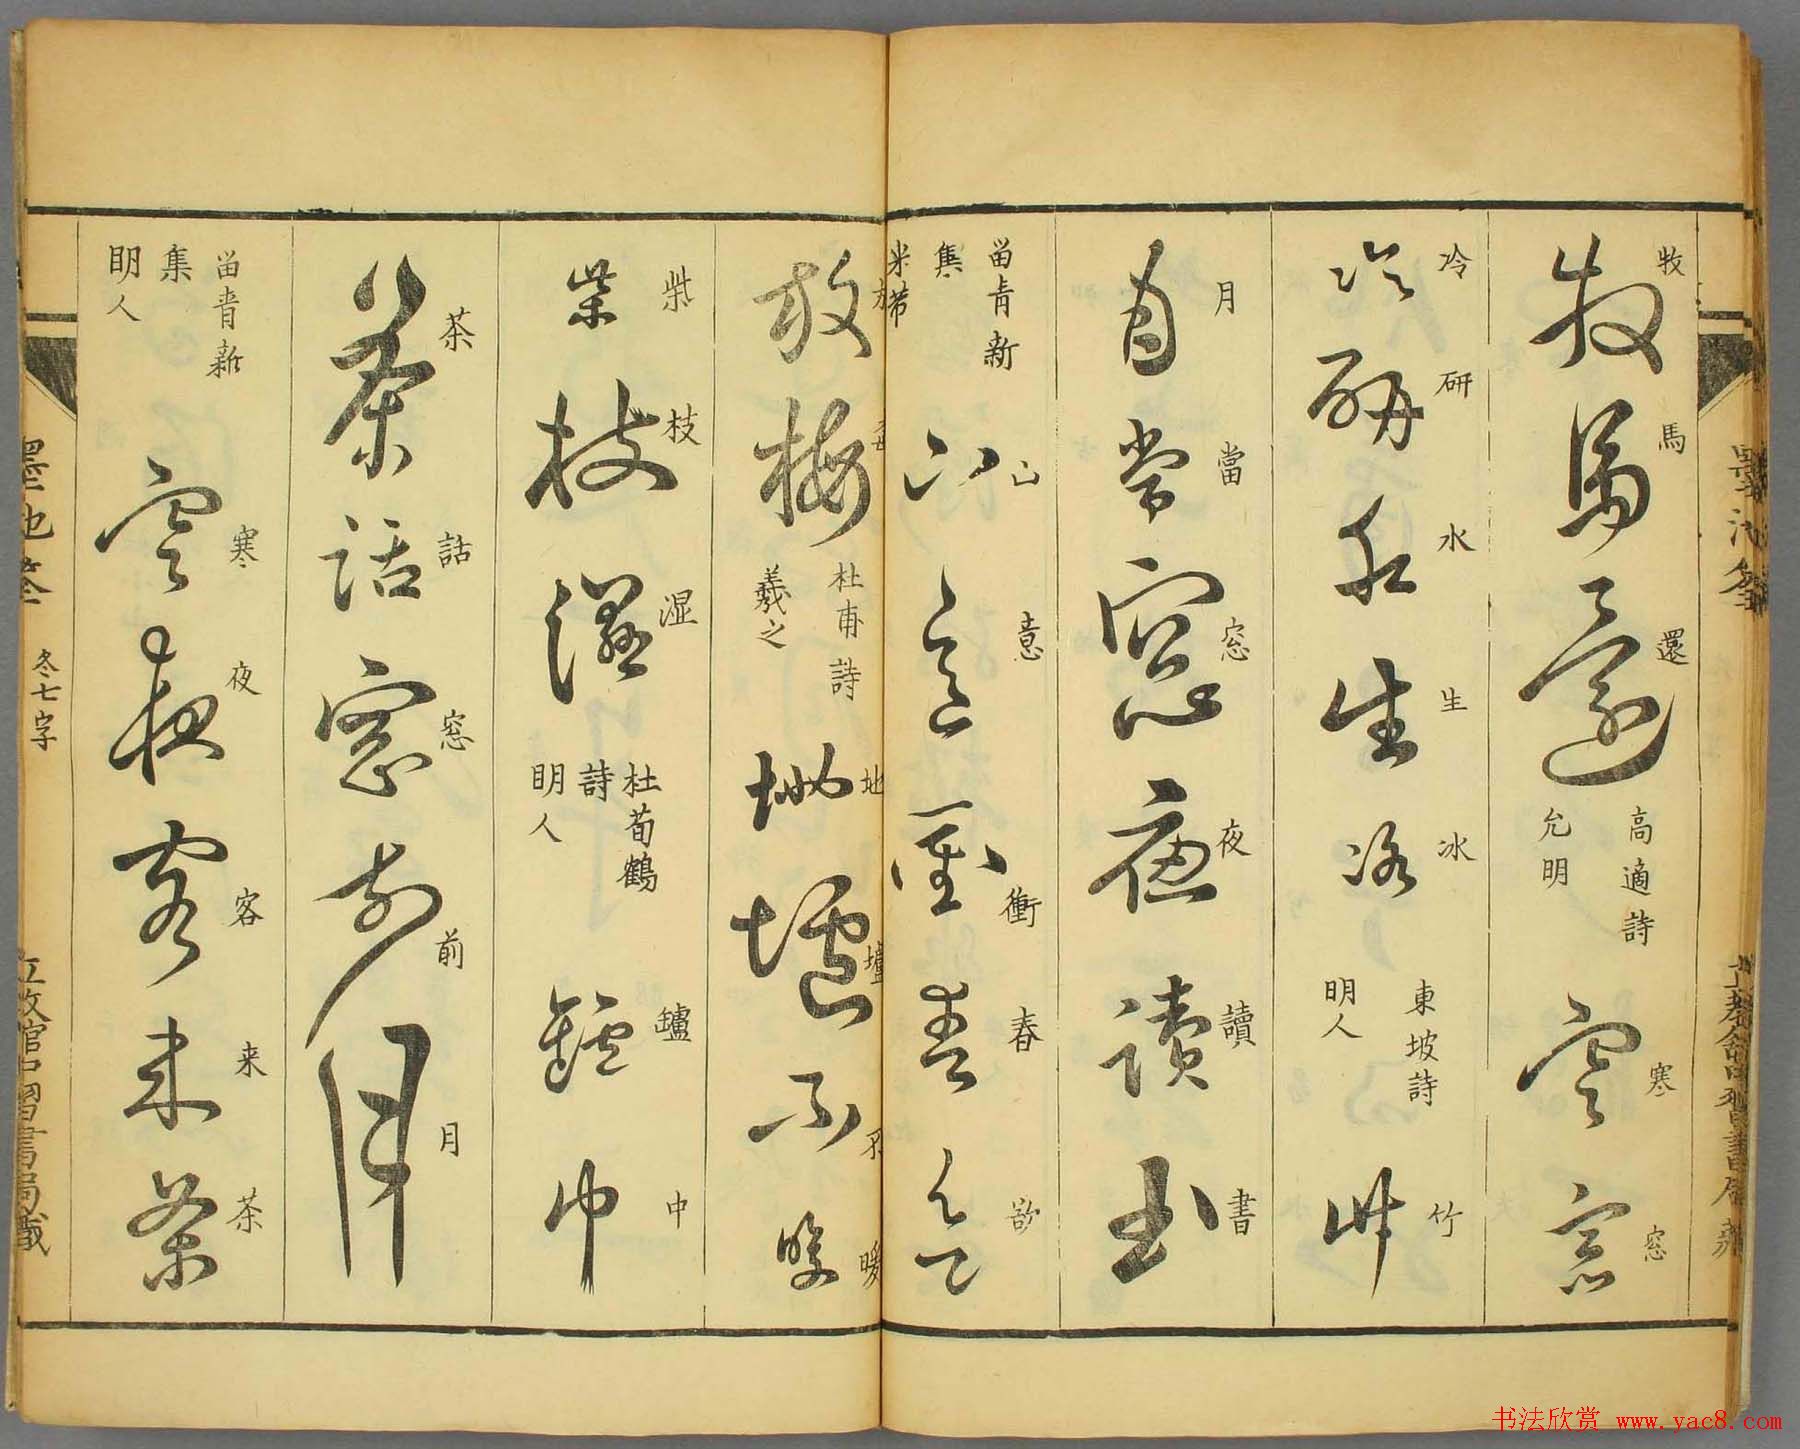 牧馬還 高適詩 允明 寒窓
冷研水生冰 東坡詩 明人 竹
月當窓夜讀書
留青新集 米芾 山意衝春欲
放梅 杜甫詩 羲之 地壚不暖
柴枝湿 杜荀鶴詩 明人 罏中
茶話窓前月
留青新集 明人 寒夜客来茶
冬七字
书法欣赏 www.yac8.com